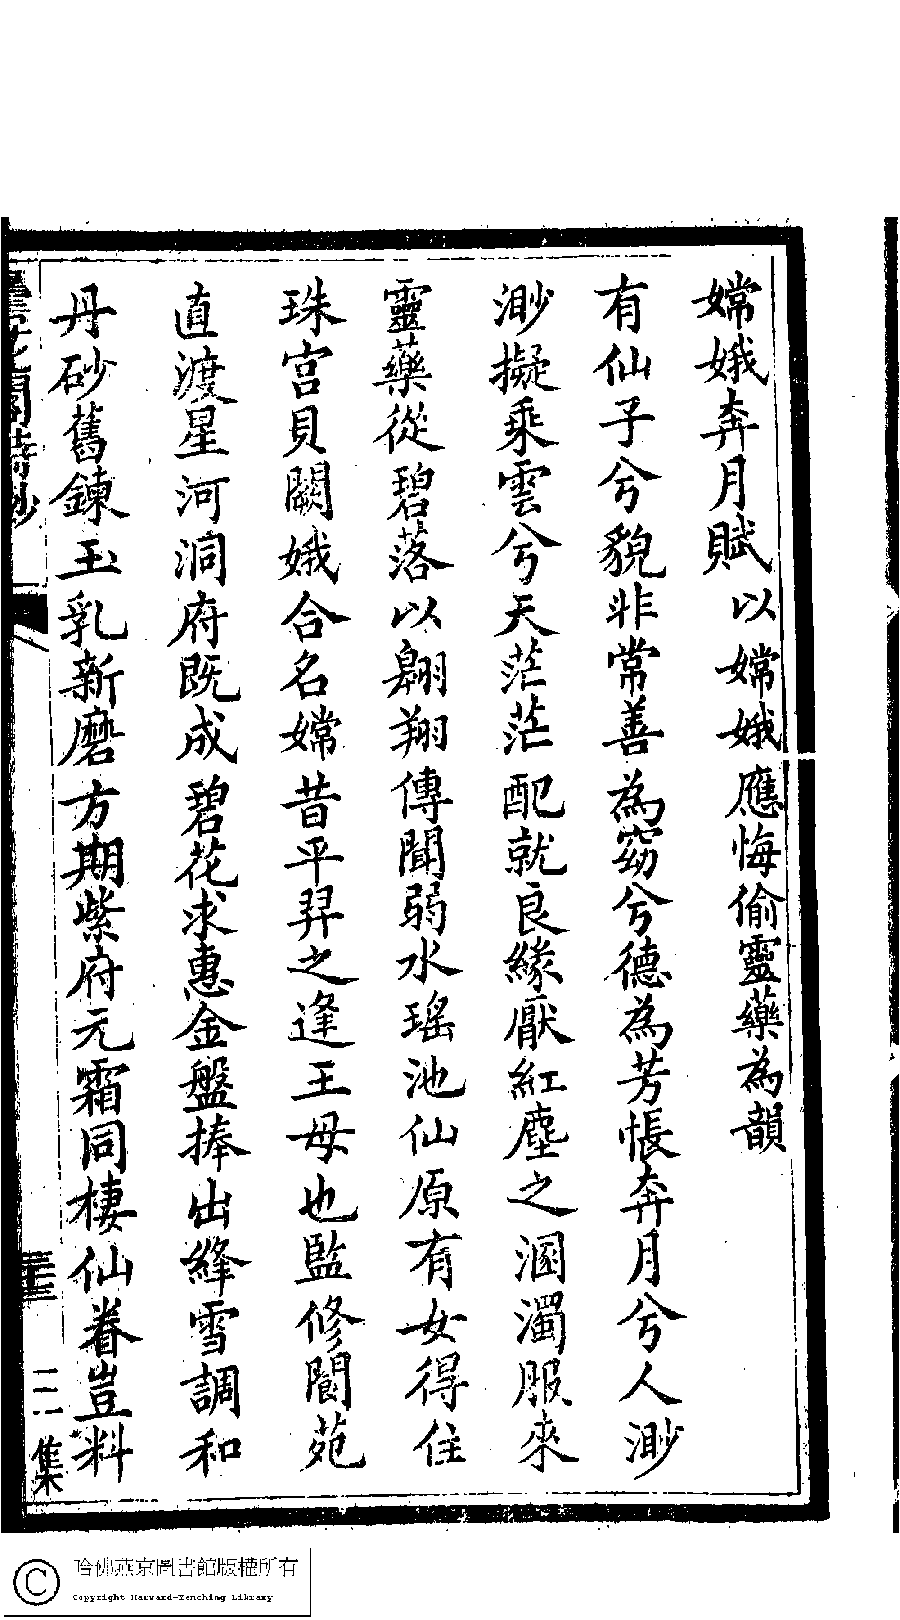 嫦娥奔月賦以嫦娥應悔偷靈藥為韻
有仙子兮貌非常善為窈兮德為芳悵奔月兮人渺
渺擬乘雲兮天茫茫配就良緣厭紅塵之溷濁服來
靈藥從碧落以翱翔傳聞弱水瑤池仙原有女得住
珠宮貝闕娥合名嫦昔平羿之逢王母也監修閬苑
直渡星河洞府既成碧花求惠金盤捧出絳雪調和
丹砂舊鍊玉乳新磨方期紫府元霜同棲仙眷豈料
花閣詩鈔
二集
哈佛燕京圖書館版權所有
Copyright Harvard-Yenching Library